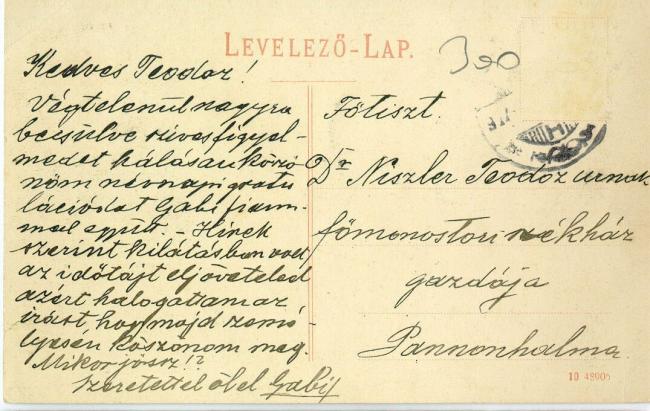 LEVELEZŐ-LAP.
300
Kedves Teodoz!
Végtelenül nagyra
becsülve szives figyel-
medet hálásan köszö
nöm névnapi gratu
lációdat Gabi fiam-
mal együtt. - Hirek
szerint kilátásban volt
az időtájt eljöveteled
azért halogattam az
irást, hogy majd szemé-
lyesen köszönöm meg.
Mikor jössz!?
Szeretettel ölel Gabi
Főtiszt.
Dr Niszler Teodóz urnak
főmonostori székház
gazdája
Pannonhalma
10 48905